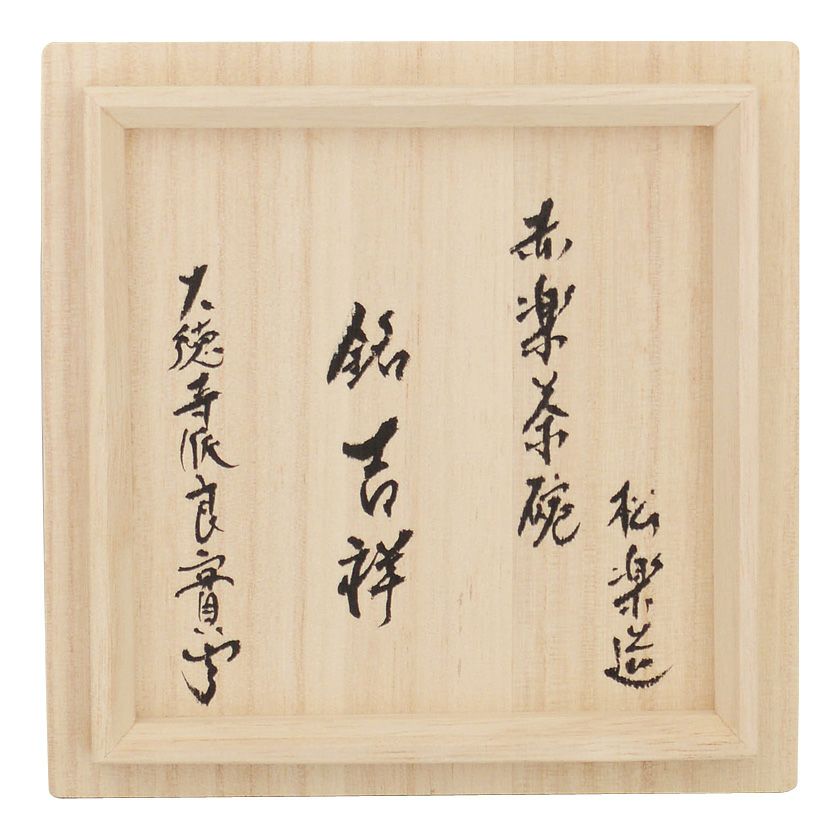 松楽造
赤楽茶碗
銘 吉祥
大徳寺派良實書